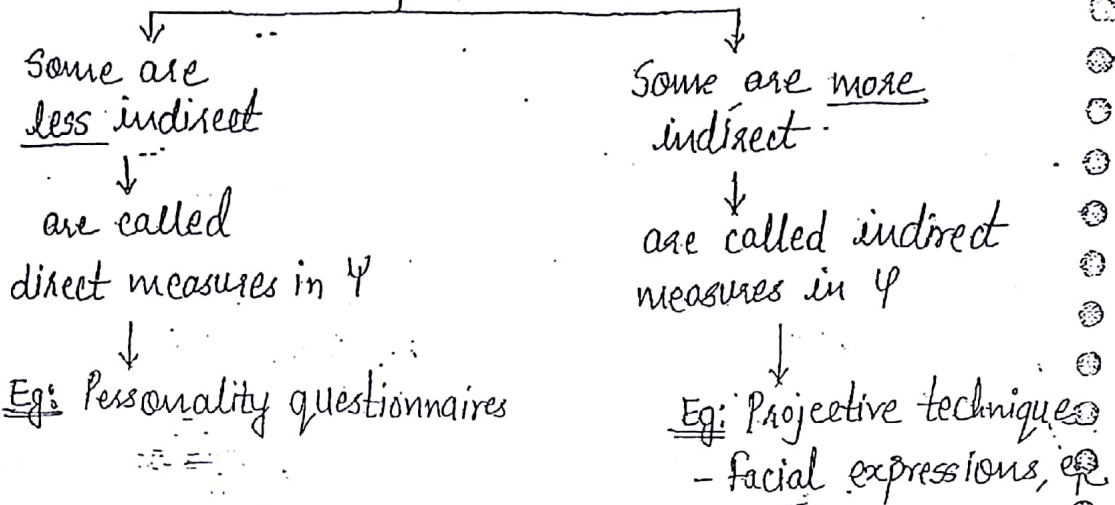 Some are
less indirect
are called
direct measures in ψ
Eg: Personality questionnaires
Some are more
indirect.
are called indirect
measures in ψ
Eg: Projective techniques
- facial expressions, etc